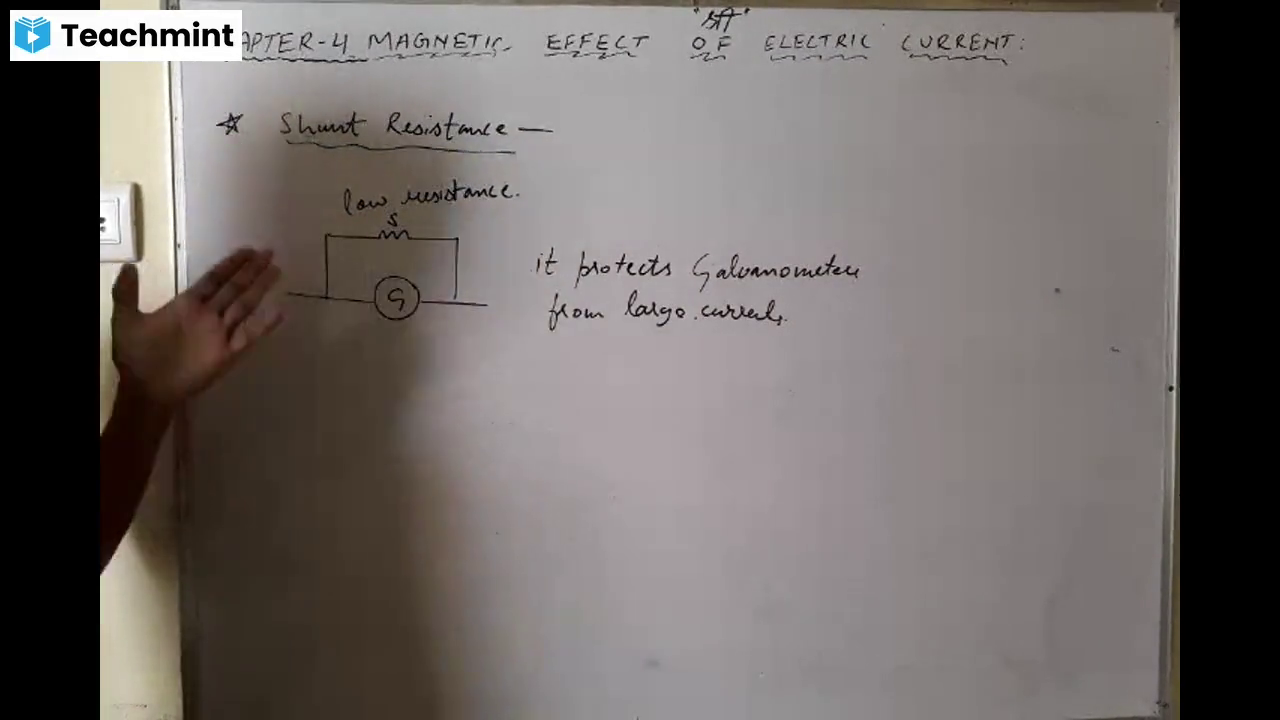 Teachmint
"श्री"
APTER-4 MAGNETIC EFFECT OF ELECTRIC CURRENT:
☆ Shunt Resistance —
low resistance.
S
G
it protects Galvanometer
from large current.